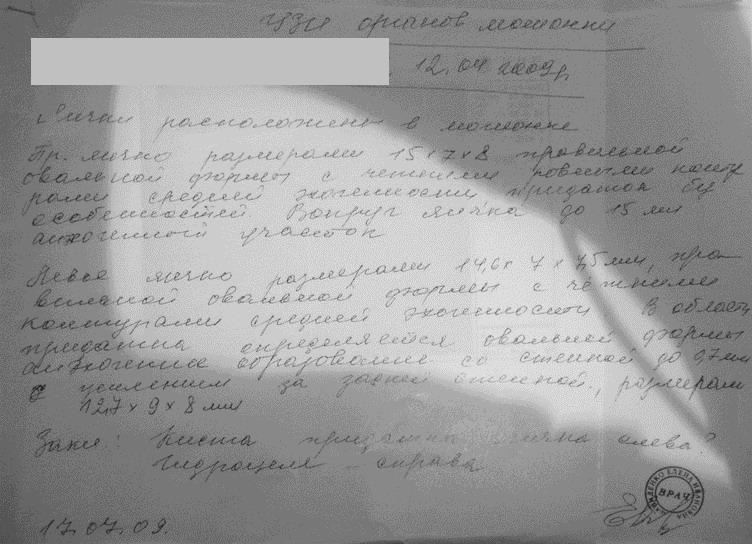 УЗИ органов мошонки
12.04 2009г.
Яички расположены в мошонке
Пр. яичко размерами 15х7х8 правильной
овальной формы с четкими ровными конту
рами средней эхогенности придаток бу
особенностей. Вокруг яичка до 15 мл
анэхогенный участок
Левое яичко размерами 14,6х 7 х 7,5мм, пра
вильной овальной формы с четкими
контурами средней эхогенности В области
придатка определяется овальной формы
анэхогенное образование со стенкой до 0,7мм
с усилением за задней стенкой, размерам
12,7 х 9 х 8 мм
Закл: Киста придатка яичка слева?
Гидроцеле - справа
17.07.09.
ЕЛЕНА ИВАНОВНА
ВРАЧ